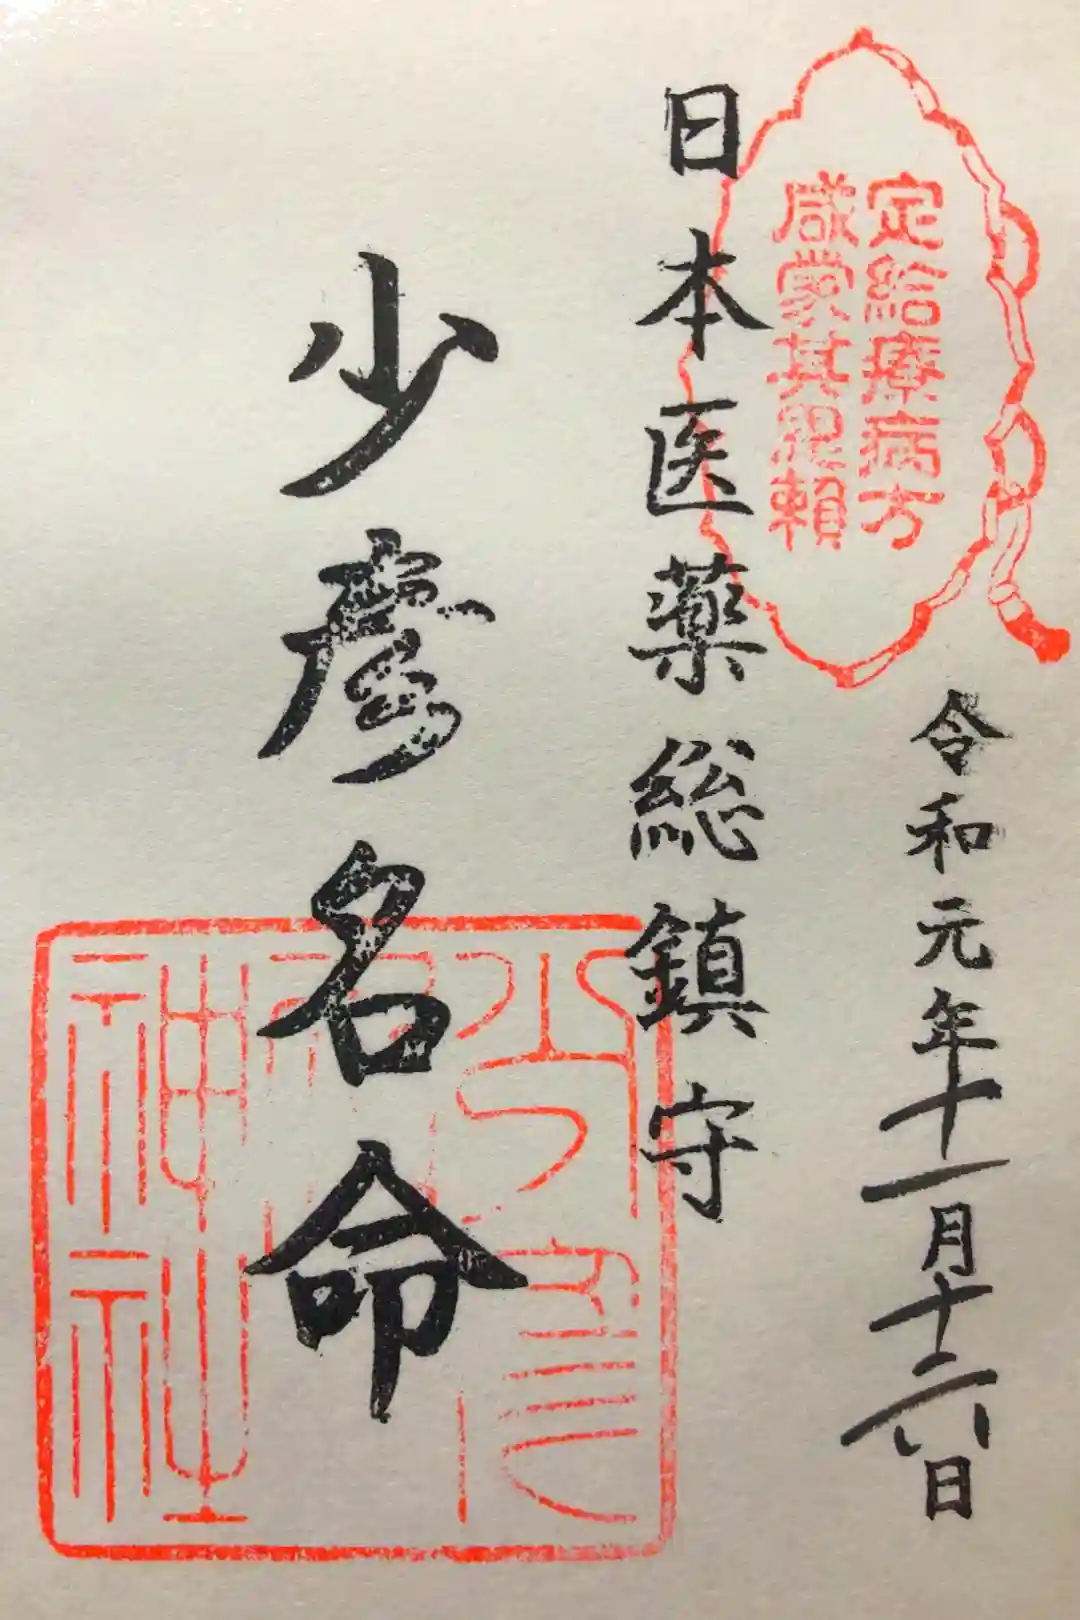 定給療病方
咸蒙其恩頼
令和元年十一月十六日
日本医薬総鎮守
少彦名命
神社